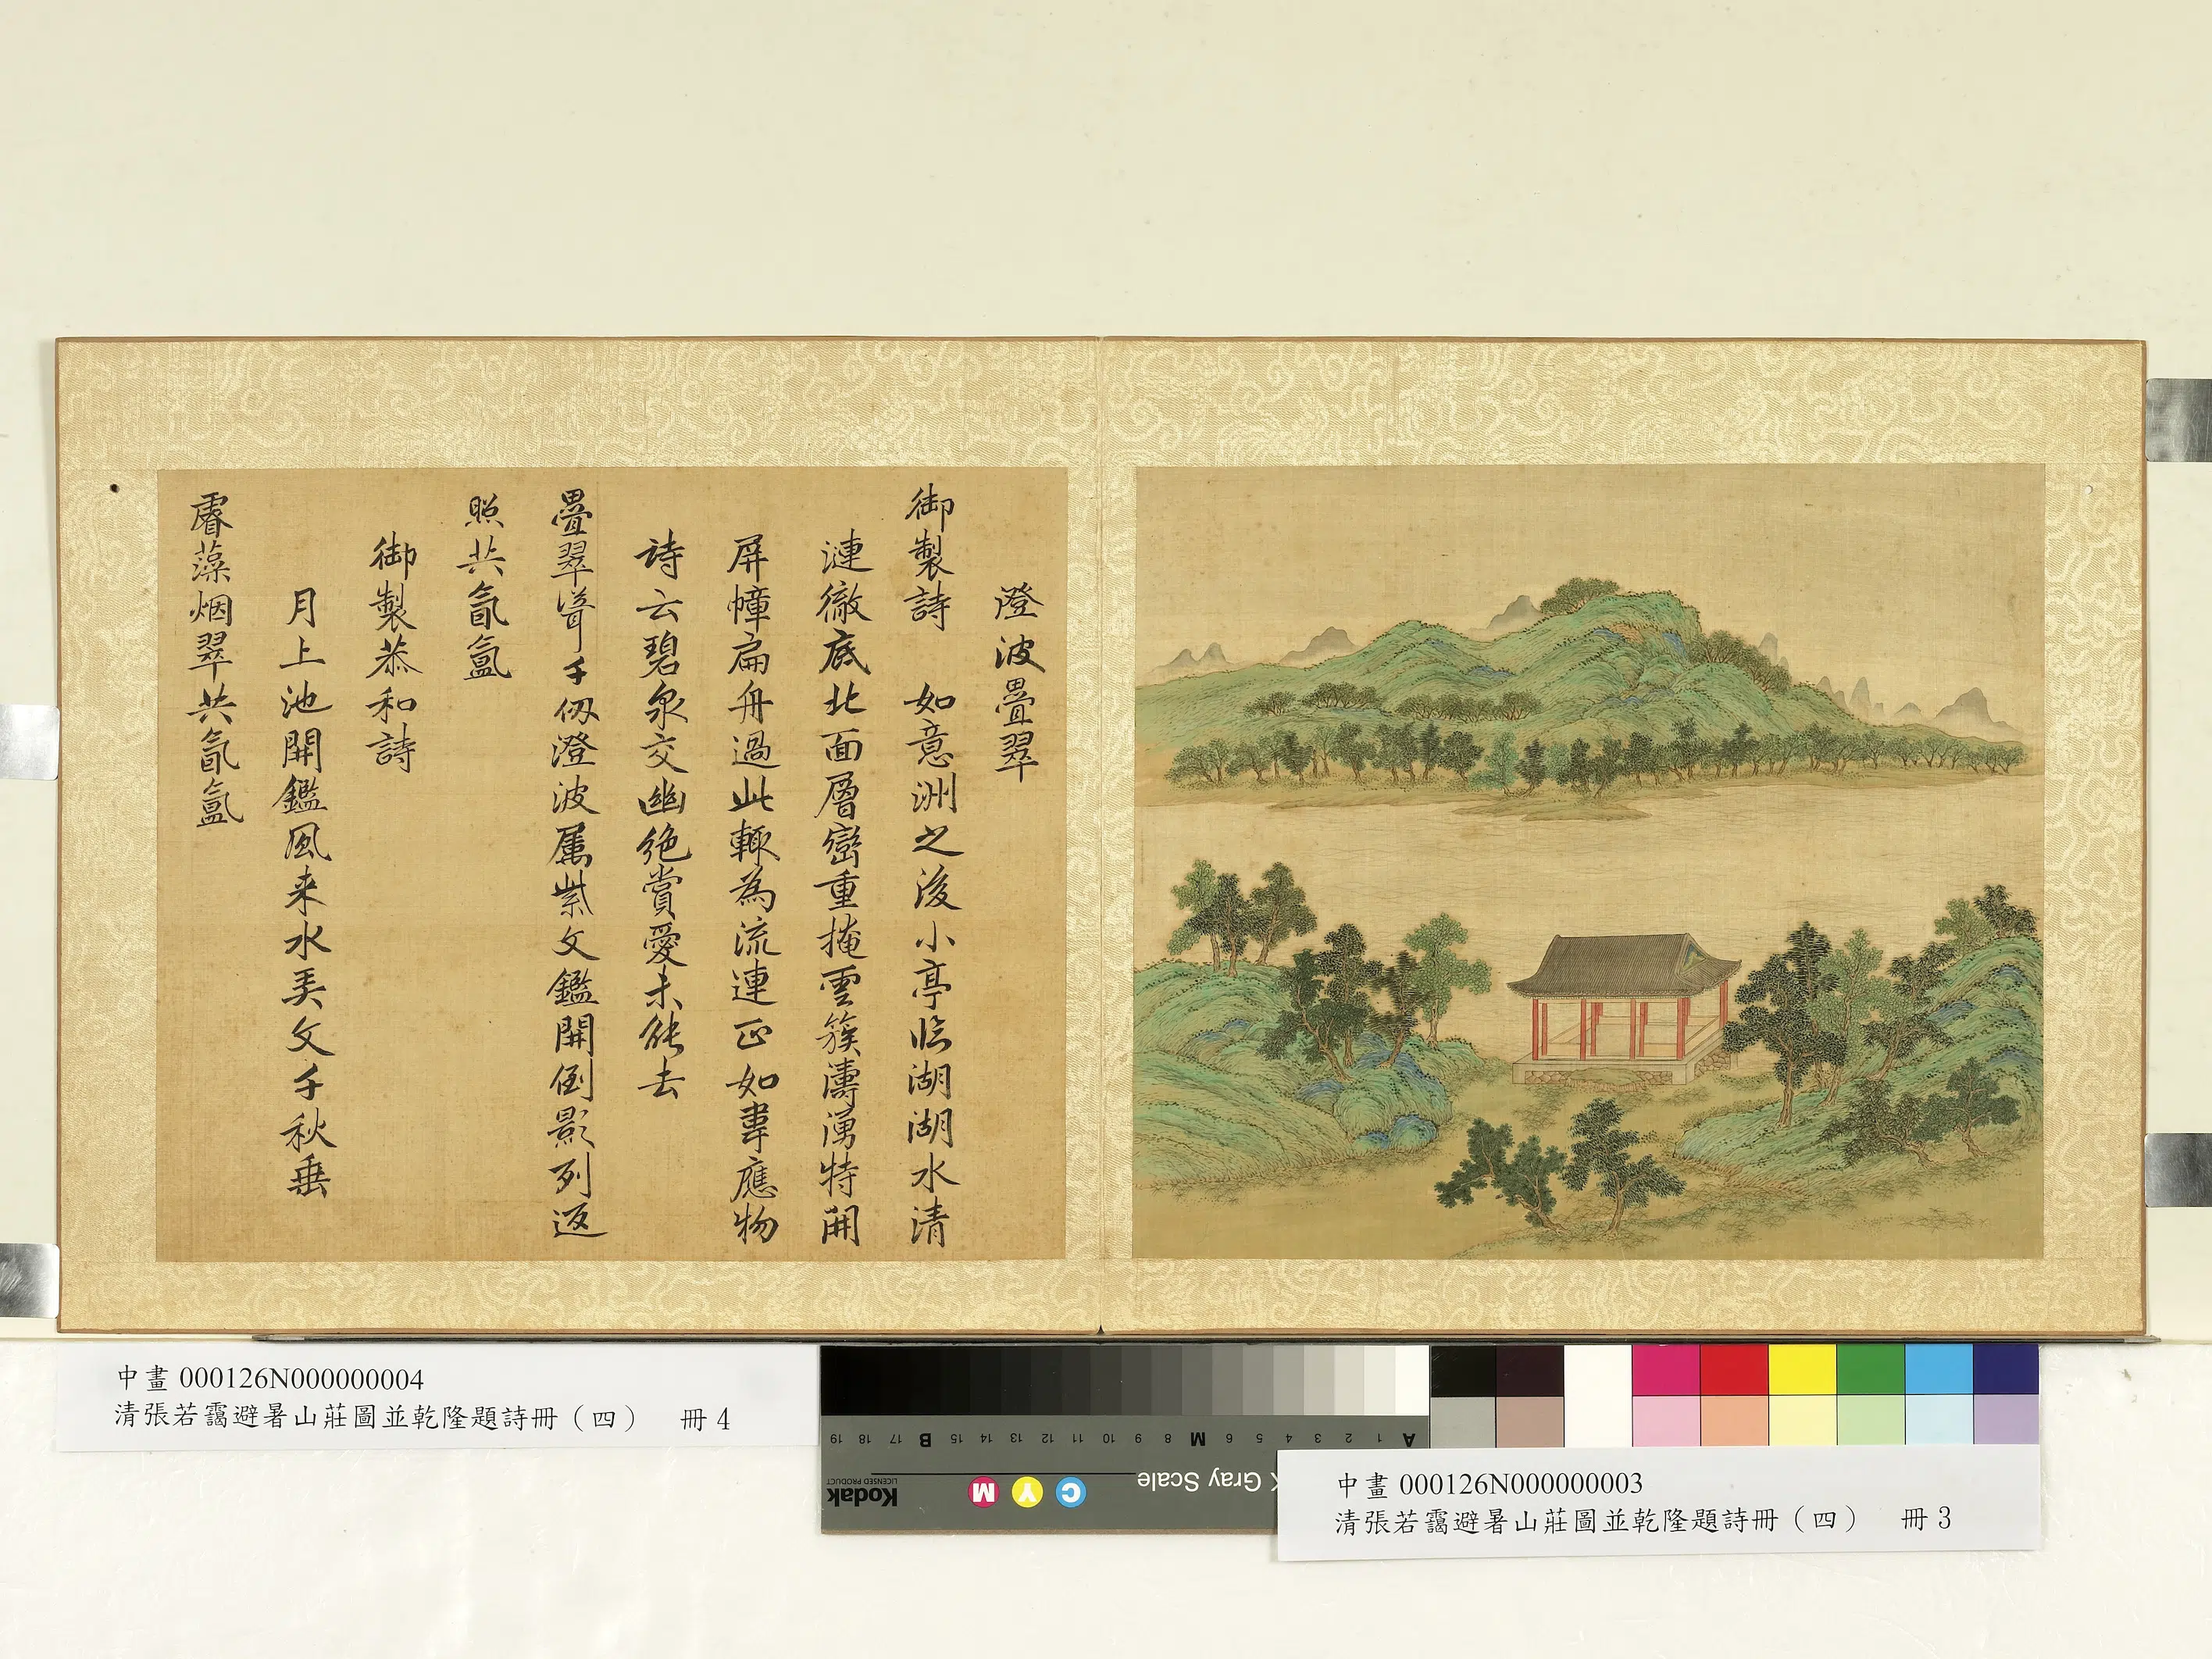 澄波疊翠
御製詩　如意洲之後小亭临湖湖水清
漣徹底北面層巒重掩雲簇濤湧特開
屏幛扁舟過此輒為流連正如韋應物
詩云碧泉交幽絶賞愛未能去
疊翠聳千仭澄波屬紫文鑑開倒影列返
照共氤氳
御製恭和詩
月上池開鑑風来水美文千秋垂
睿藻烟翠共氤氳
中畫 000126N000000004
清張若靄避暑山莊圖並乾隆題詩冊（四）　冊 4
中畫 000126N000000003
清張若靄避暑山莊圖並乾隆題詩冊（四）　冊 3
A 1 2 3 4 5 6 M 8 9 10 11 12 13 14 15 B 17 18 19
Gray Scale
C Y M
Kodak
LICENSED PRODUCT